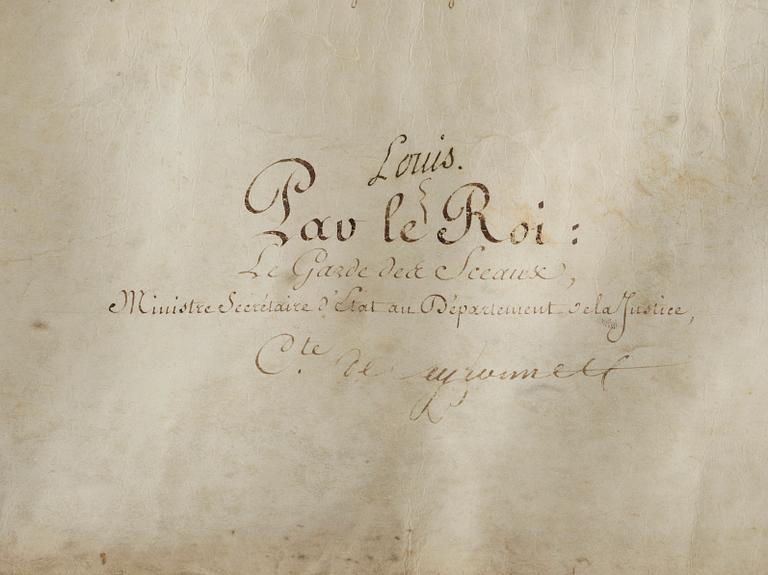 Louis.
Par le Roi :
Le Garde des Sceaux,
Ministre Secrétaire d'Etat au Département de la Justice,
C.te de Peyronnet